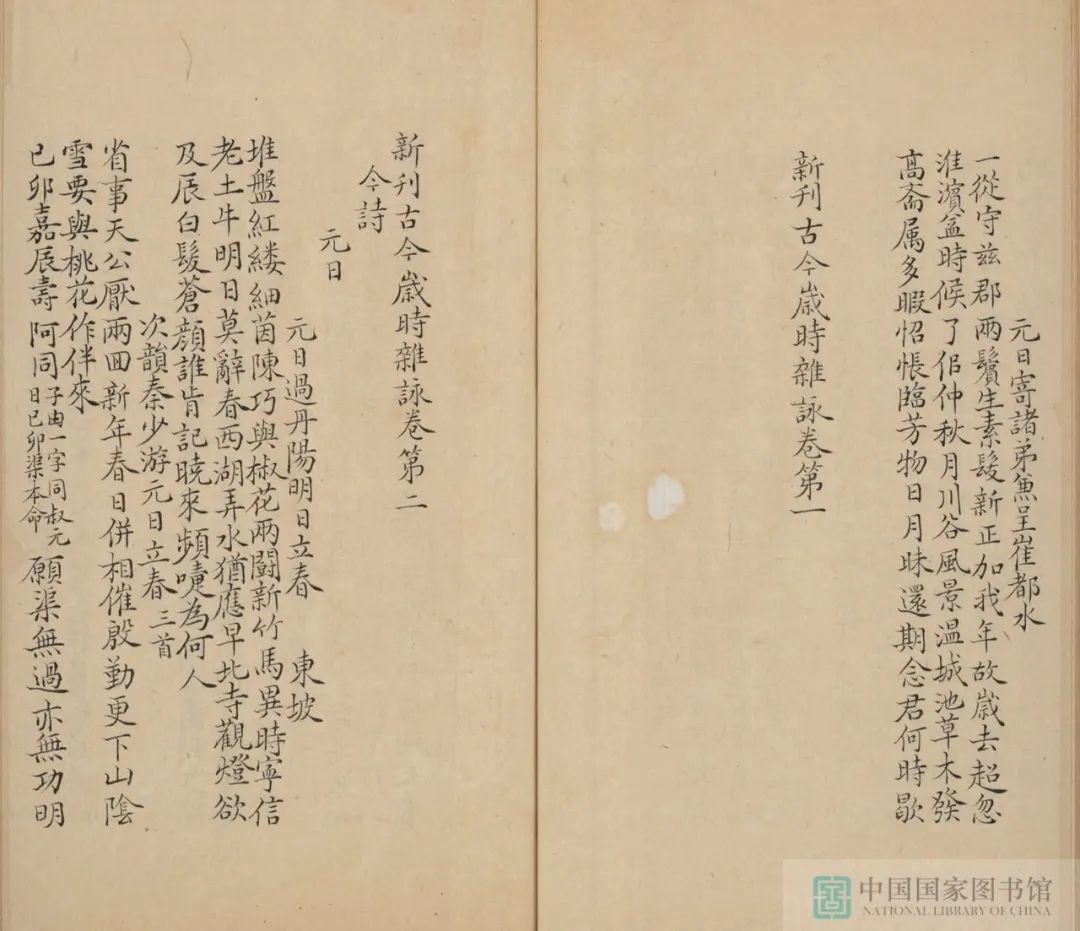 元日寄諸弟兼呈崔都水
一從守兹郡兩鬢生素髮新正加我年故歲去超忽
淮濱益時候了似仲秋月川谷風景温城池草木發
高齋属多暇怊悵臨芳物日月昧還期念君何時歇
新刊古今歲時雜詠卷第一
新刊古今歲時雜詠卷第二
今詩
元日
元日過丹陽明日立春 東坡
堆盤紅縷細茵陳巧與椒花兩鬪新竹馬異時寧信
老土牛明日莫辭春西湖弄水猶應早北寺觀燈欲
及辰白髮蒼顔誰肯記曉來頻嚏為何人
次韻秦少游元日立春三首
省事天公厭兩回新年春日併相催殷勤更下山陰
雪要與桃花作伴來
己卯嘉辰壽阿同子由一字同叔元日己卯渠本命願渠無過亦無功明
中国国家图书馆
NATIONAL LIBRARY OF CHINA